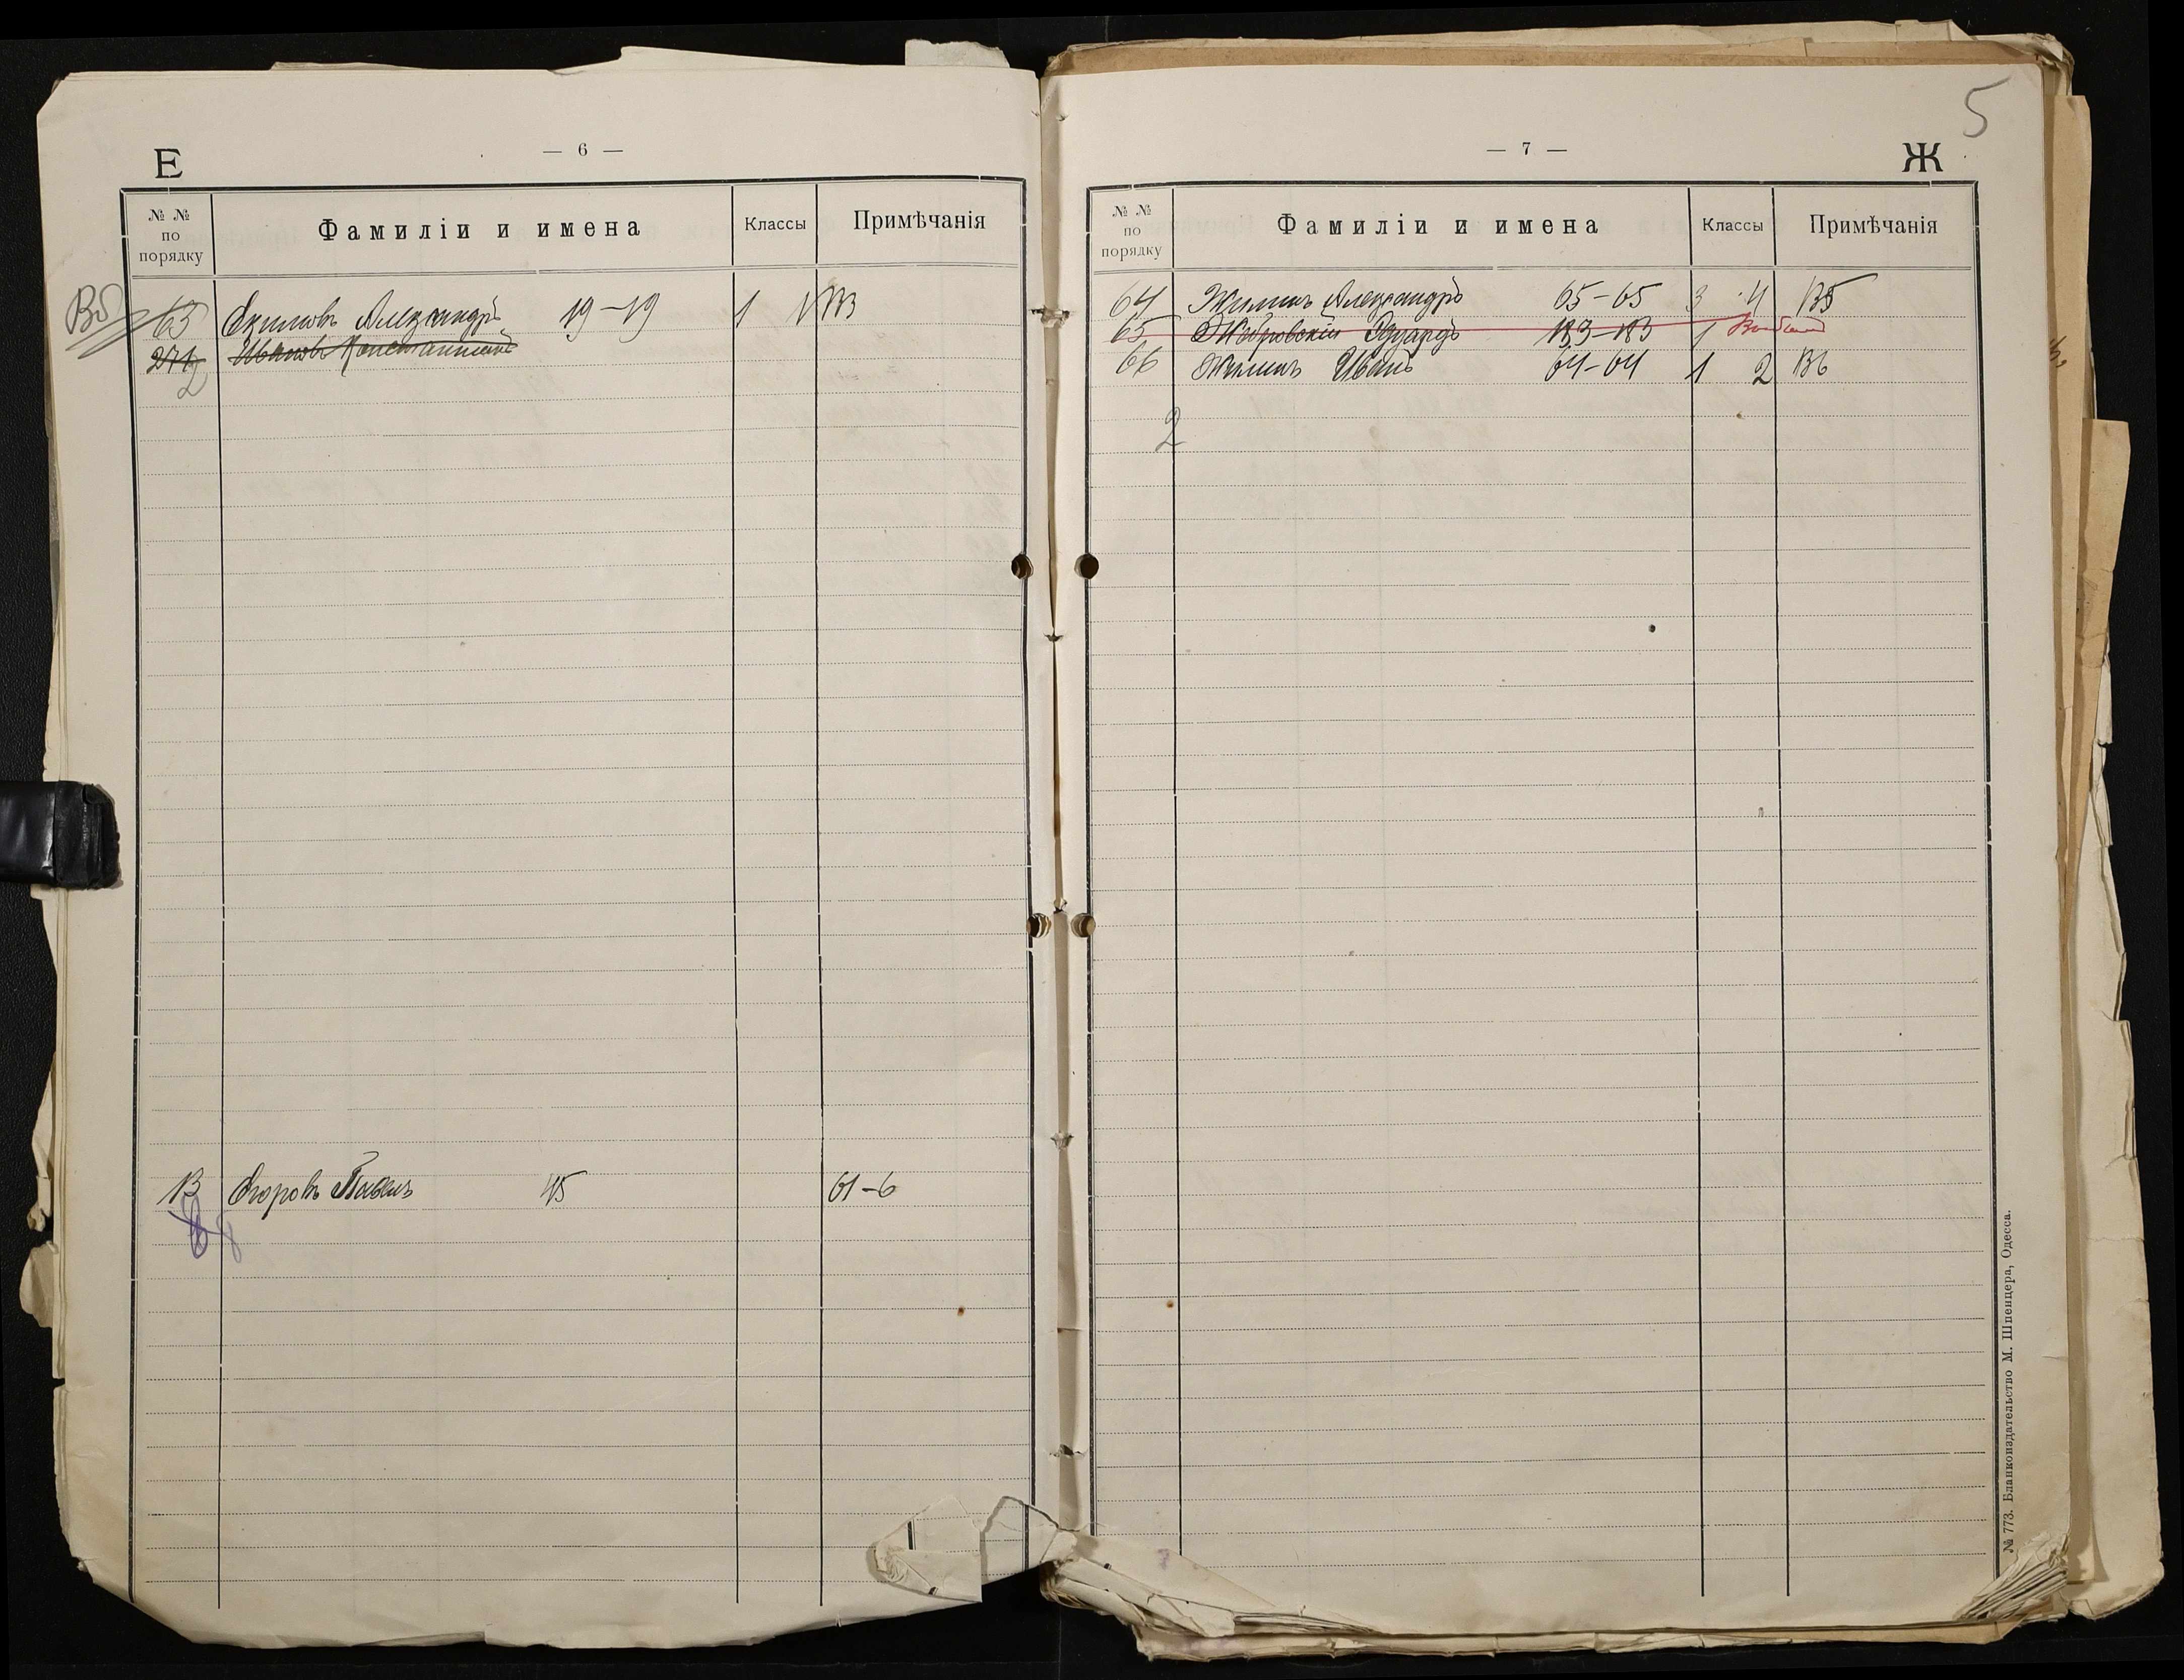 Е
— 6 —
№ № по порядку Фамиліи и имена Классы Примѣчанія
63 Екимовъ Александръ 19-19 1
271 Ивановъ Константинъ
2
13 Егоровъ Павелъ 45 61-6
5
— 7 —
Ж
№ № по порядку Фамиліи и имена Классы Примѣчанія
64 Жилинъ Александръ 65-65 3 4 135
65 Жабровскій Эдуардъ 183-183 1
66 Жилинъ Иванъ 64-64 1 2 136
2
№ 773. Бланкоиздательство М. Шпенцера, Одесса.